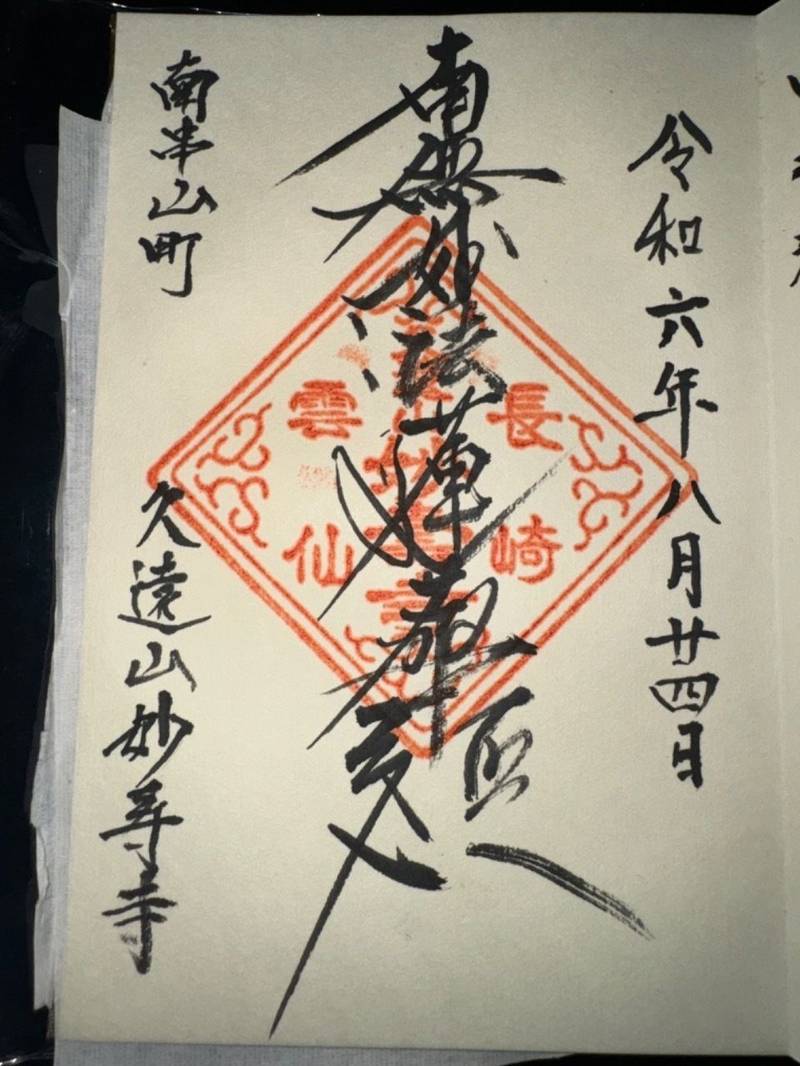 令和六年八月廿四日
南無妙法蓮華経
長崎
雲仙
南串山町
久遠山妙尋寺